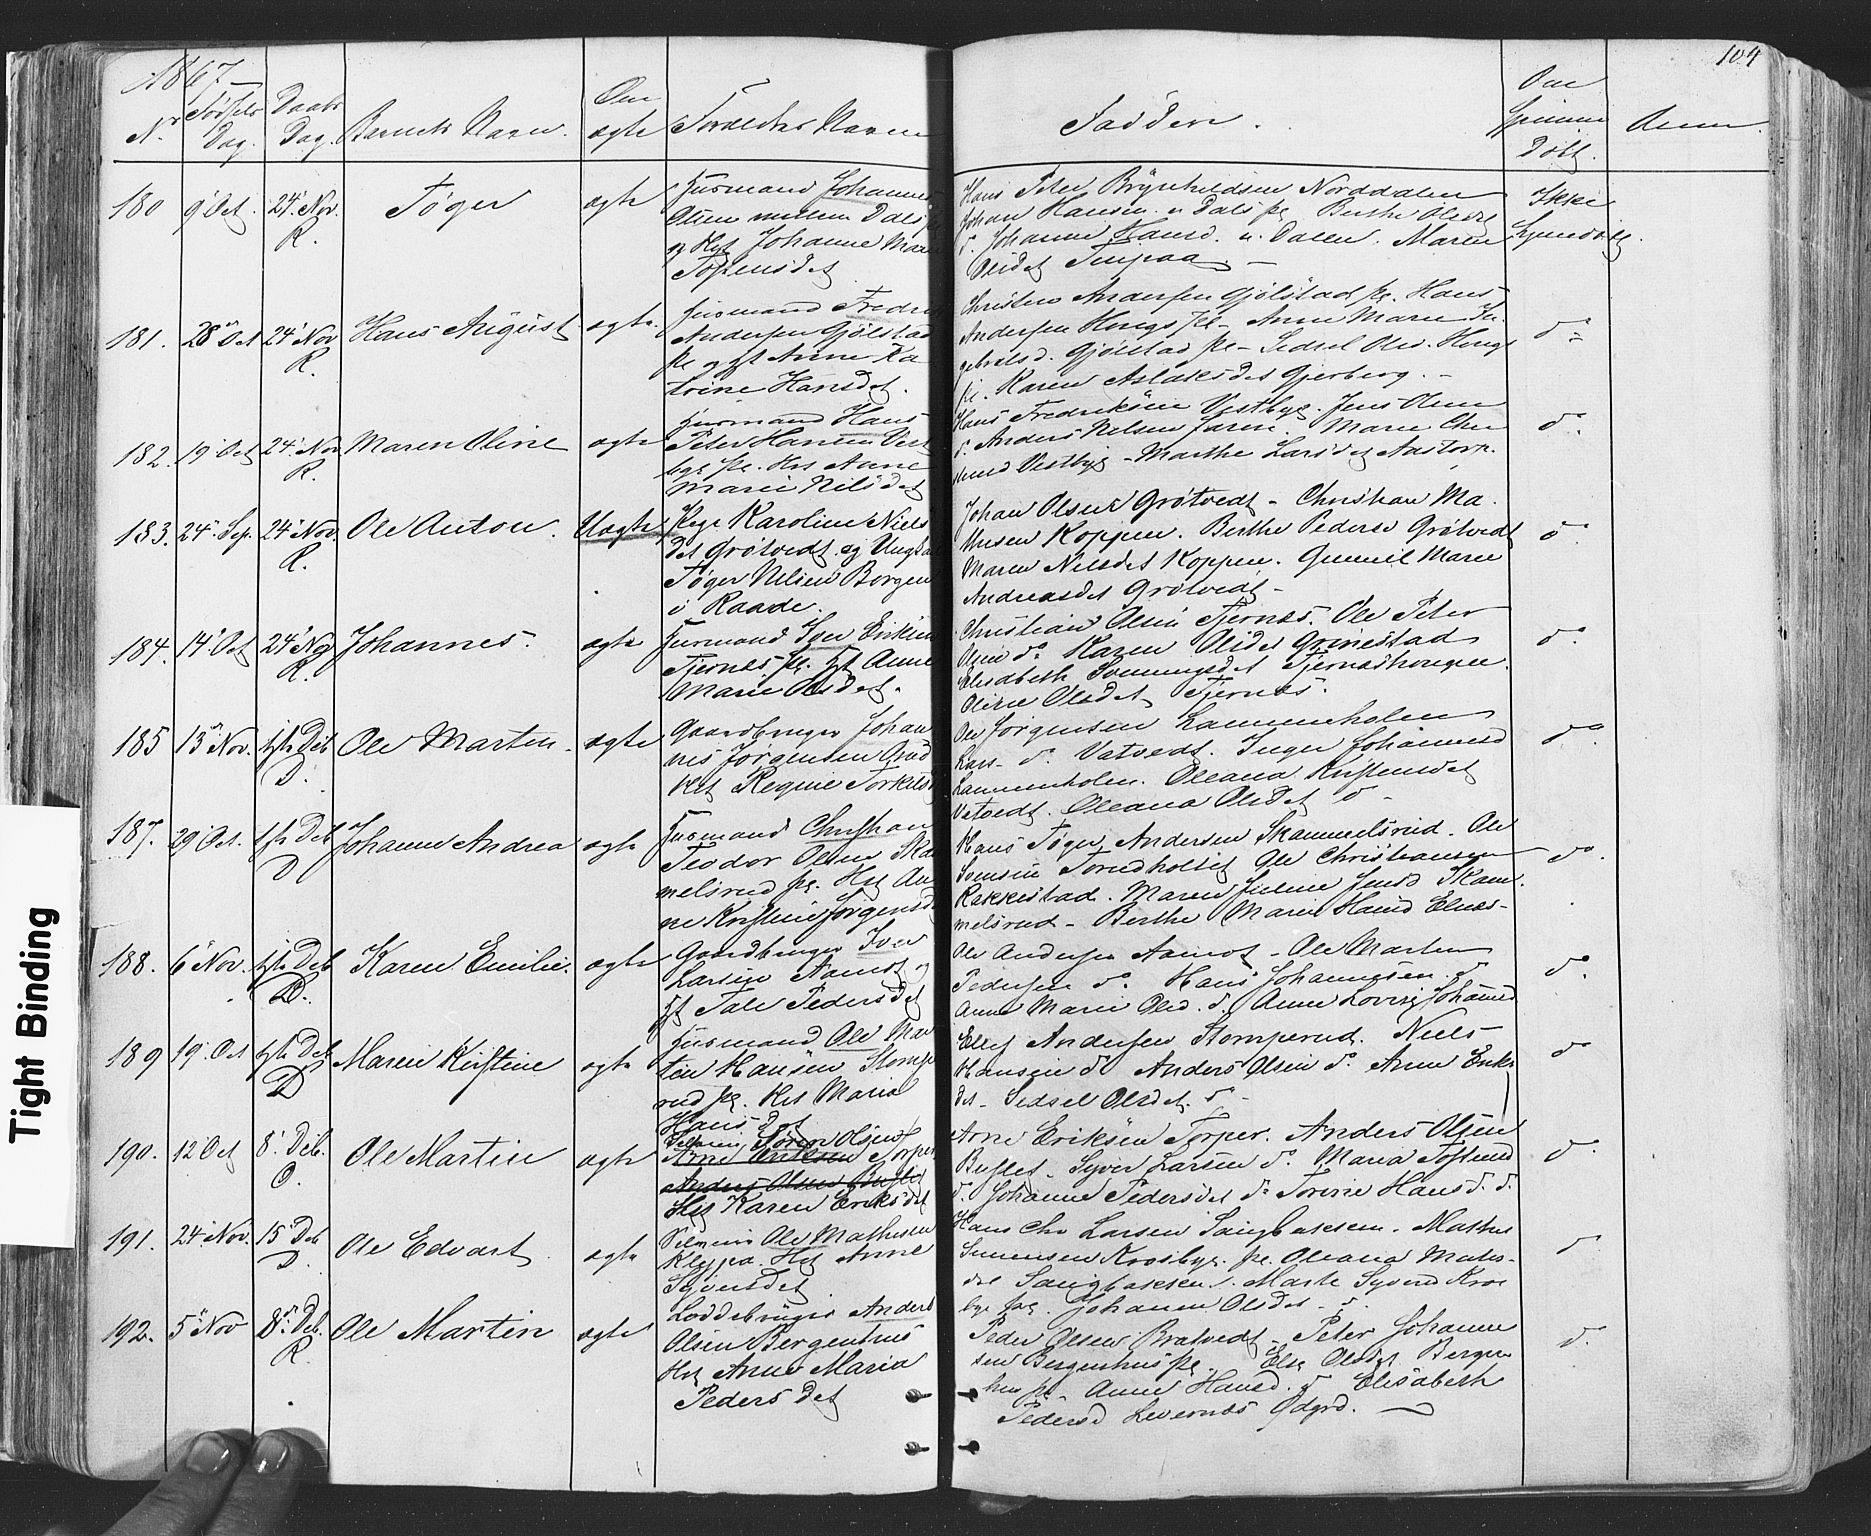 1867
104
Nr
Fødsels Dag.
Daabs Dag.
Barnets Navn.
Om ægte
Forældres Navne
Faddere.
Om
Hjemme
Døbt.
Anm.
180 9' Oct. 24' Nov. R. Tøger ægte
Husmand Johannes
Olsen
og Hst Johanne Marie
Hans Peter Brynhildsen Norddalen
Johan Hansen
Berthe
Johanne Hansd. Maren
Olsdet
Ikke
hjemdøbt
181. 28' Oct 24' Nov R. Hans August ægte.
Husmand Fredrik
Andersen Gjølstad
pl. og Hst Anne Ka
trine Hansdet.
Christen Andersen Gjølstad pl. Hans
Andersen Haugs pl - Anne Marie In
gebretsd. Gjølstad pl - Sidsel Olsd. Haugs
pl. Karen Aslaksdet Gjerberg. -
do
182. 19' Oct 24' Nov R. Maren Oline ægte
Husmand Hans
Peter Hansen Vest
bye pl. Hst Anne
Marie Nilsdet
Hans Fredriksen Vestbye. Jens Olsen
do Anders Nilsen Jaren. Maren
Vestbye - Marthe Larsdet Aastorp.
do.
183. 24' Sep. 24' Nov. R. Ole Anton. Uægte
Pige Karoline Niels
det Grøtvedt og Ungkarl
Tøger Nilsen Borgen
i Raade.
Johan Olsen Grøtvedt - Christian Ma
thisen Koppen. Berthe Pedersd Grøtvedt
Maren Nilsdet Koppen. Gunnil Marie
Andreasdet Grøtvedt -
do.
184. 14' Oct 24' Nov R. Johannes. ægte
Husmand Iver Eriksen
Tjernes pl. Hst Anne
Marie Olsdet.
Christian Olsen Tjernæs. Ole Peter
Olsen do Karen Olsdet Grinestad
Elisabeth Tjernæshaugen.
Oline Olsdet Tjernæs.
do.
185 13' Nov. 1ste Deb D. Ole Marten. ægte
Gaardbruger Johan
nes Jørgensen
Hst Regine Torkilsd
Ole Jørgensen Lammenholen
Lars do. Vatvedt. Inger Johannesd
Lammenholen. Oleana Kristensdet
Vatvedt. Oleana Olsdet do -
do.
187. 29' Oct. 1ste Deb D Johanne Andrea ægte
Husmand Christian
Teodor Olsen Skam
melsrud pl. Hst An
ne Kristine Jørgensd
Hans Tøger Andersen Skammelsrud. Ole
Svensen Torudholtet Ole Christiansen
Rakkestad. Maren Juline Jensd Skam
melsrud - Berthe Marie Hansd Elnæs-
do.
188. 6' Nov. 1ste Deb D. Karen Emilie. ægte
Gaardbruger Iver
Larsen Aamot og
Hst Tale Pedersdet
Ole Andersen Aamot - Ole Marten
Pedersen do. Hans Johannesen. do
Anne Marie Olsd. do. Anne Lovise Johannesd
do.
189 19' Oct 1ste Deb D Maren Kirstine ægte
Husmand Ole Mar
ten Hansen Stompe
rud pl. Hst Maria
Hansdet
Ellef Andersen Stomperud. Niels
Hansen do Anders Olsen do. Anne Eriks
det - Sidsel Olsdet. do -
do
190. 12 Oct 8' Deb. O. Ole Martin ægte
Selveier Søren Olsen
Arne Eriksen Torper
Anders Olsen Buflet
Hst Karen Eriksdet
Arne Eriksen Torper. Anders Olsen
Buflet. Syver Larsen do. Maria
do. Johanne Pedersdet do Torine Hansd. do.
do.
191. 24' Nov. 15' Deb D. Ole Edvart ægte
Selveier Ole Mathisen
Kleppa. Hst Anne
Syversdet
Hans Chr Larsen Sangbakken. Mathis
Simensen Krosbye. pl. Oleana Mathis
det Sangbakken. Marte Syversd Kros
bye pl. Johanne Olsdet - do.
do
192. 5' Nov 8' Deb. R. Ole Martin ægte
Loddebruger Anders
Olsen Bergenhus
Hst Anne Maria
Pedersdet
Peder Olsen Bratvedt - Peter Johanne
sen Bergenhus pl. Else Olsdet Bergen
hus pl. Anne Hansd. do Elisabeth
Pedersd Levernæs Ødgrd. -
do.
Tight Binding